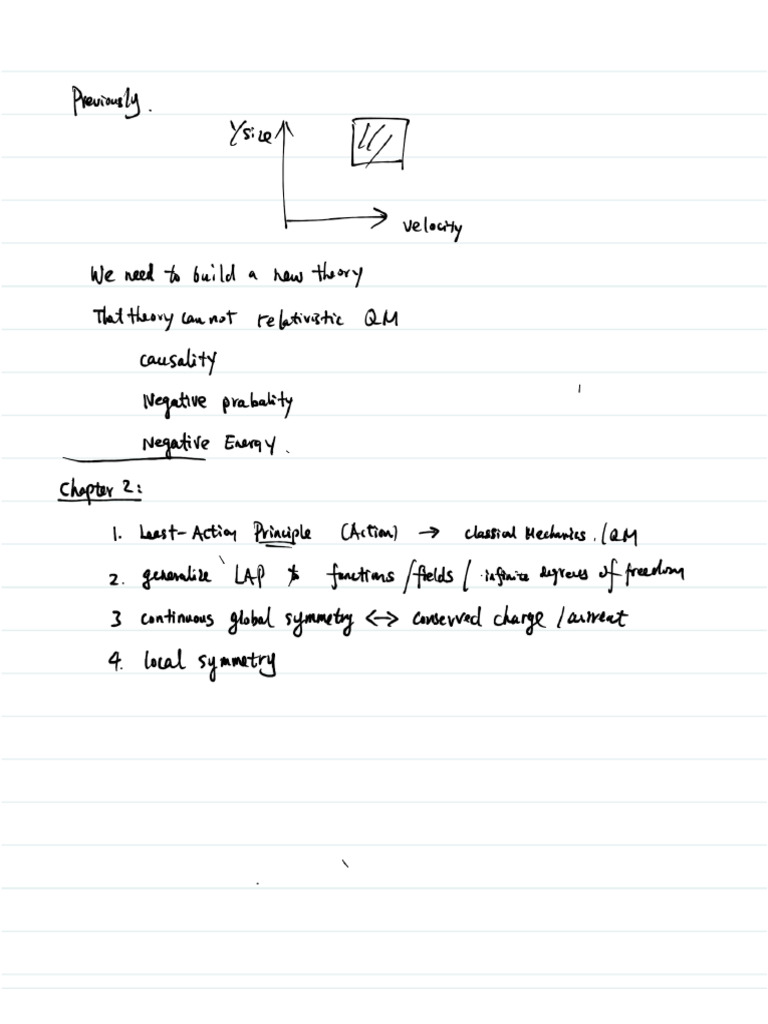 Previously.
Ysize
velocity
We need to build a new theory
That theory can not relativistic QM
causality
Negative prabality
Negative Energy.
Chapter 2:
1. Least-Action Principle (Action) → classical Mechanics. / QM
2. generalize LAP to functions / fields / infinite degrees of freedom
3 continuous global symmetry <-> conserved charge / current
4. local symmetry